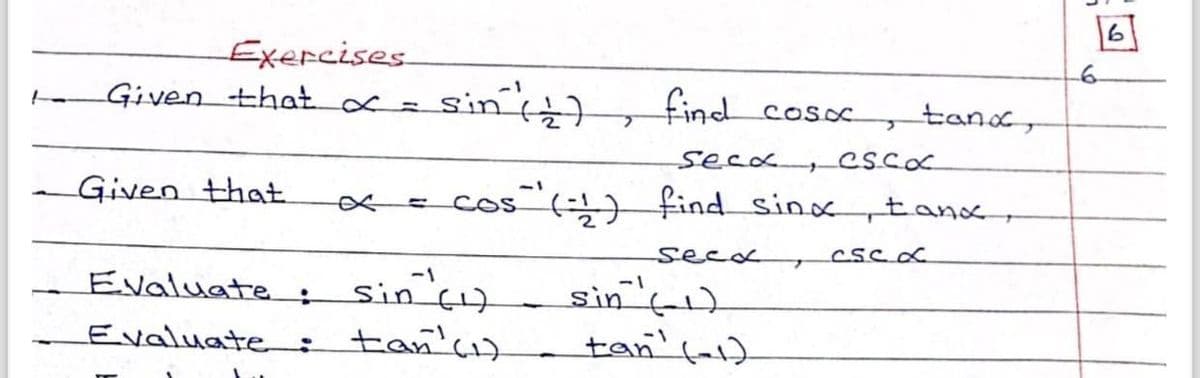 6
Exercises
6
1- Given that α = sin⁻¹(1/2) , find cosα , tanα ,
secα , cscα
- Given that α = cos⁻¹(-1/2) find sinα , tanα ,
secα , cscα
- Evaluate : sin⁻¹(1) - sin⁻¹(-1)
- Evaluate : tan⁻¹(1) - tan⁻¹(-1)